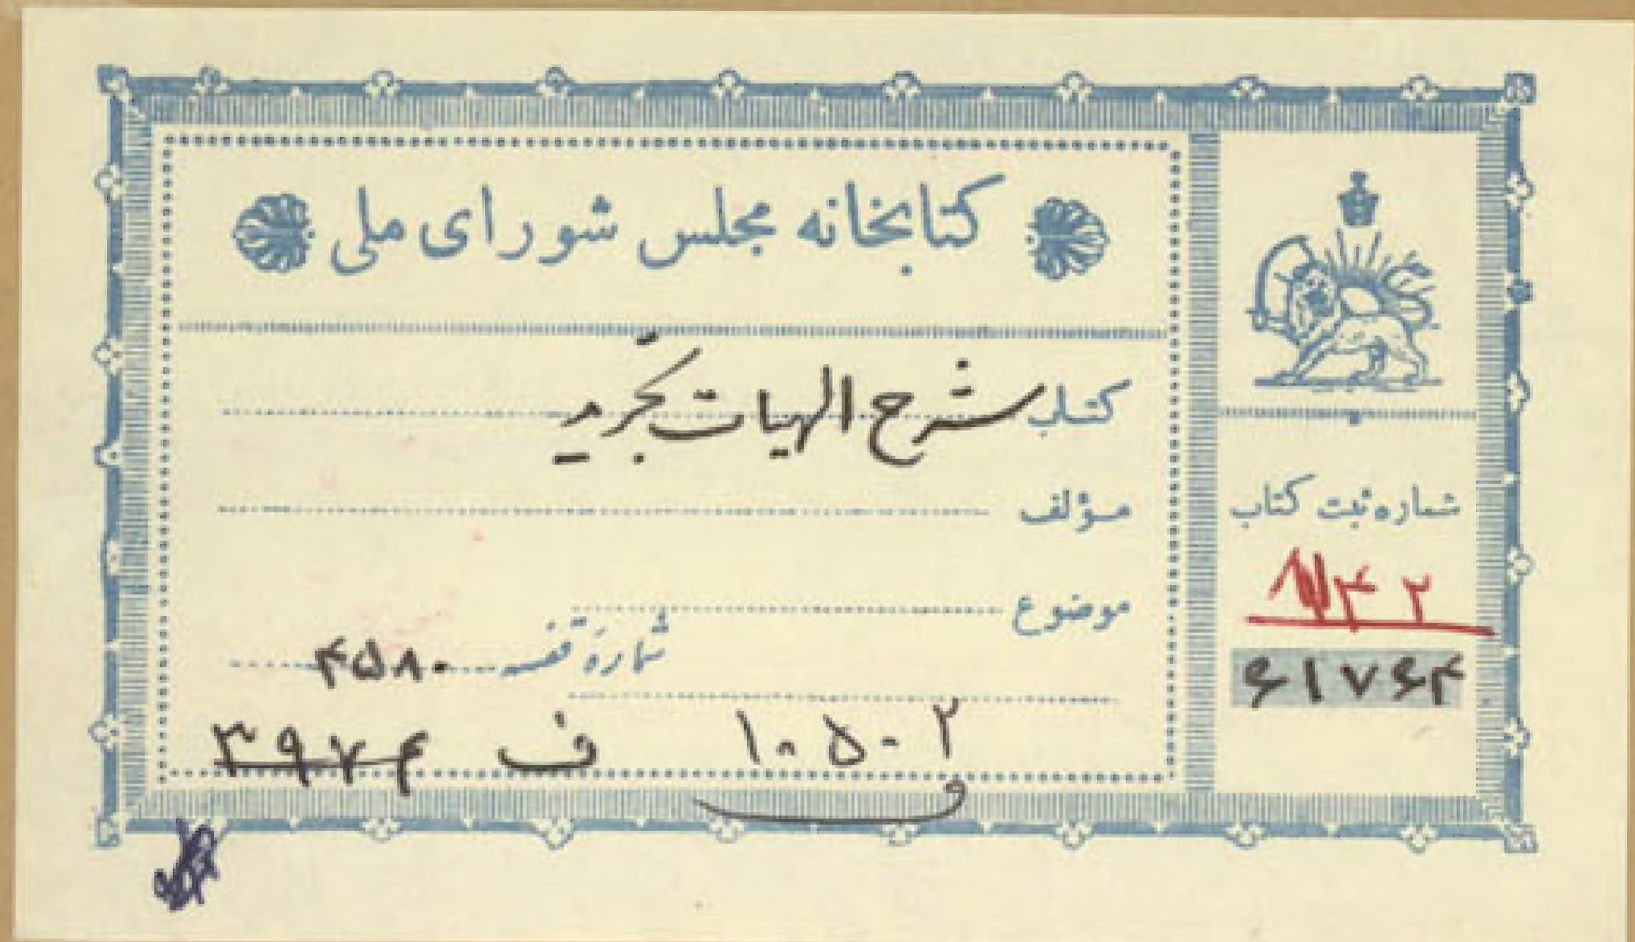 کتابخانه مجلس شورای ملی
کتاب شرح الهیات تجرید
مؤلف
موضوع
شماره قفسه ۴۵۸۰
۱۰۵۰۲
ف ۳۹۷۴
ف
شماره ثبت کتاب
۶۱۷۶۴